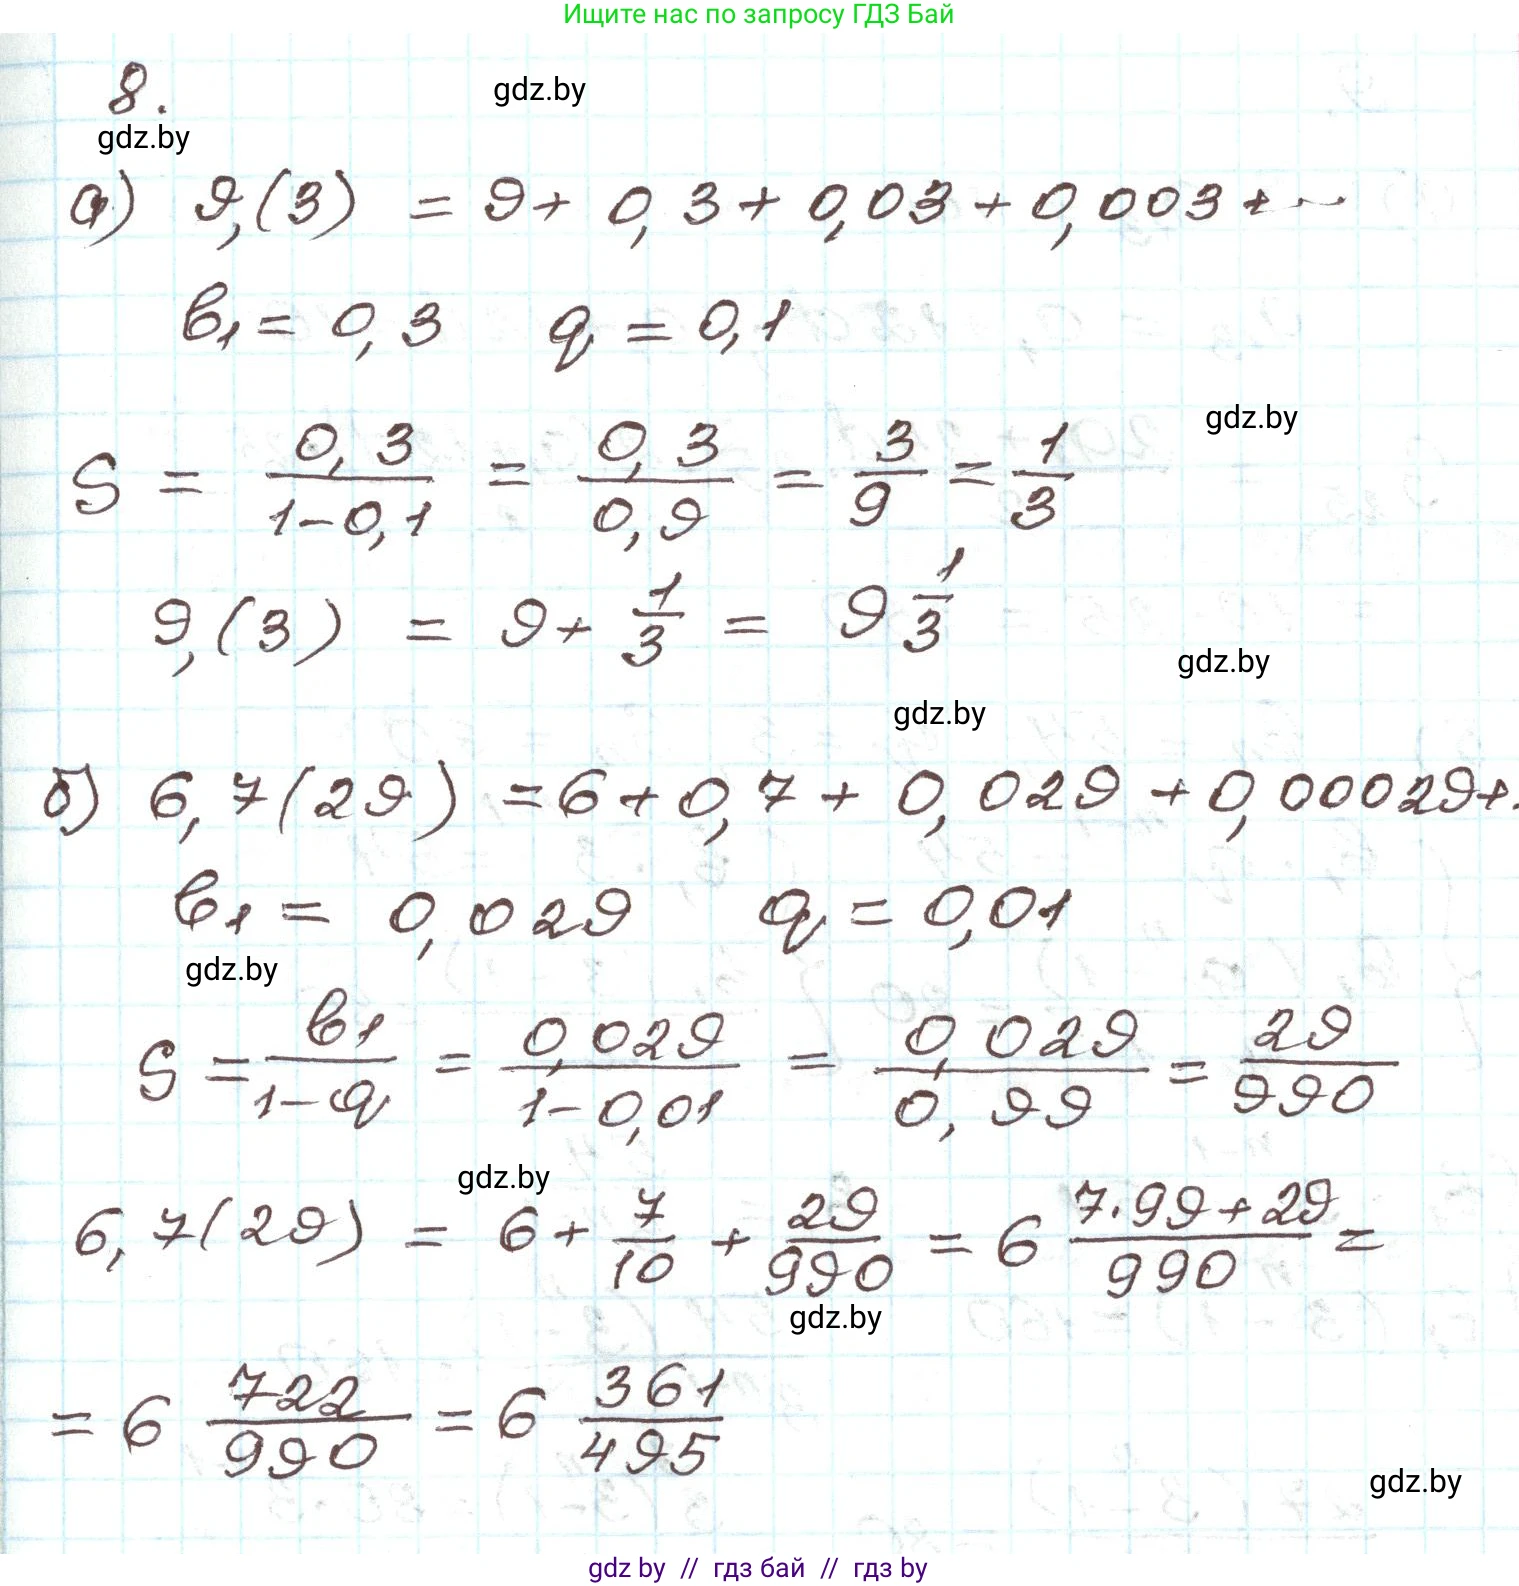 Ищите нас по запросу ГДЗ Бай
8.
gdz.by
gdz.by
а) 9,(3) = 9 + 0,3 + 0,03 + 0,003 + ...
b₁ = 0,3 q = 0,1
gdz.by
S = 0,3/(1-0,1) = 0,3/0,9 = 3/9 = 1/3
9,(3) = 9 + 1/3 = 9 1/3
gdz.by
gdz.by
б) 6,7(29) = 6 + 0,7 + 0,029 + 0,00029 + .
b₁ = 0,029 q = 0,01
gdz.by
S = b₁/(1-q) = 0,029/(1-0,01) = 0,029/0,99 = 29/990
gdz.by
6,7(29) = 6 + 7/10 + 29/990 = 6 (7·99+29)/990 =
gdz.by
= 6 722/990 = 6 361/495
gdz.by
gdz by // гдз бай // гдз by